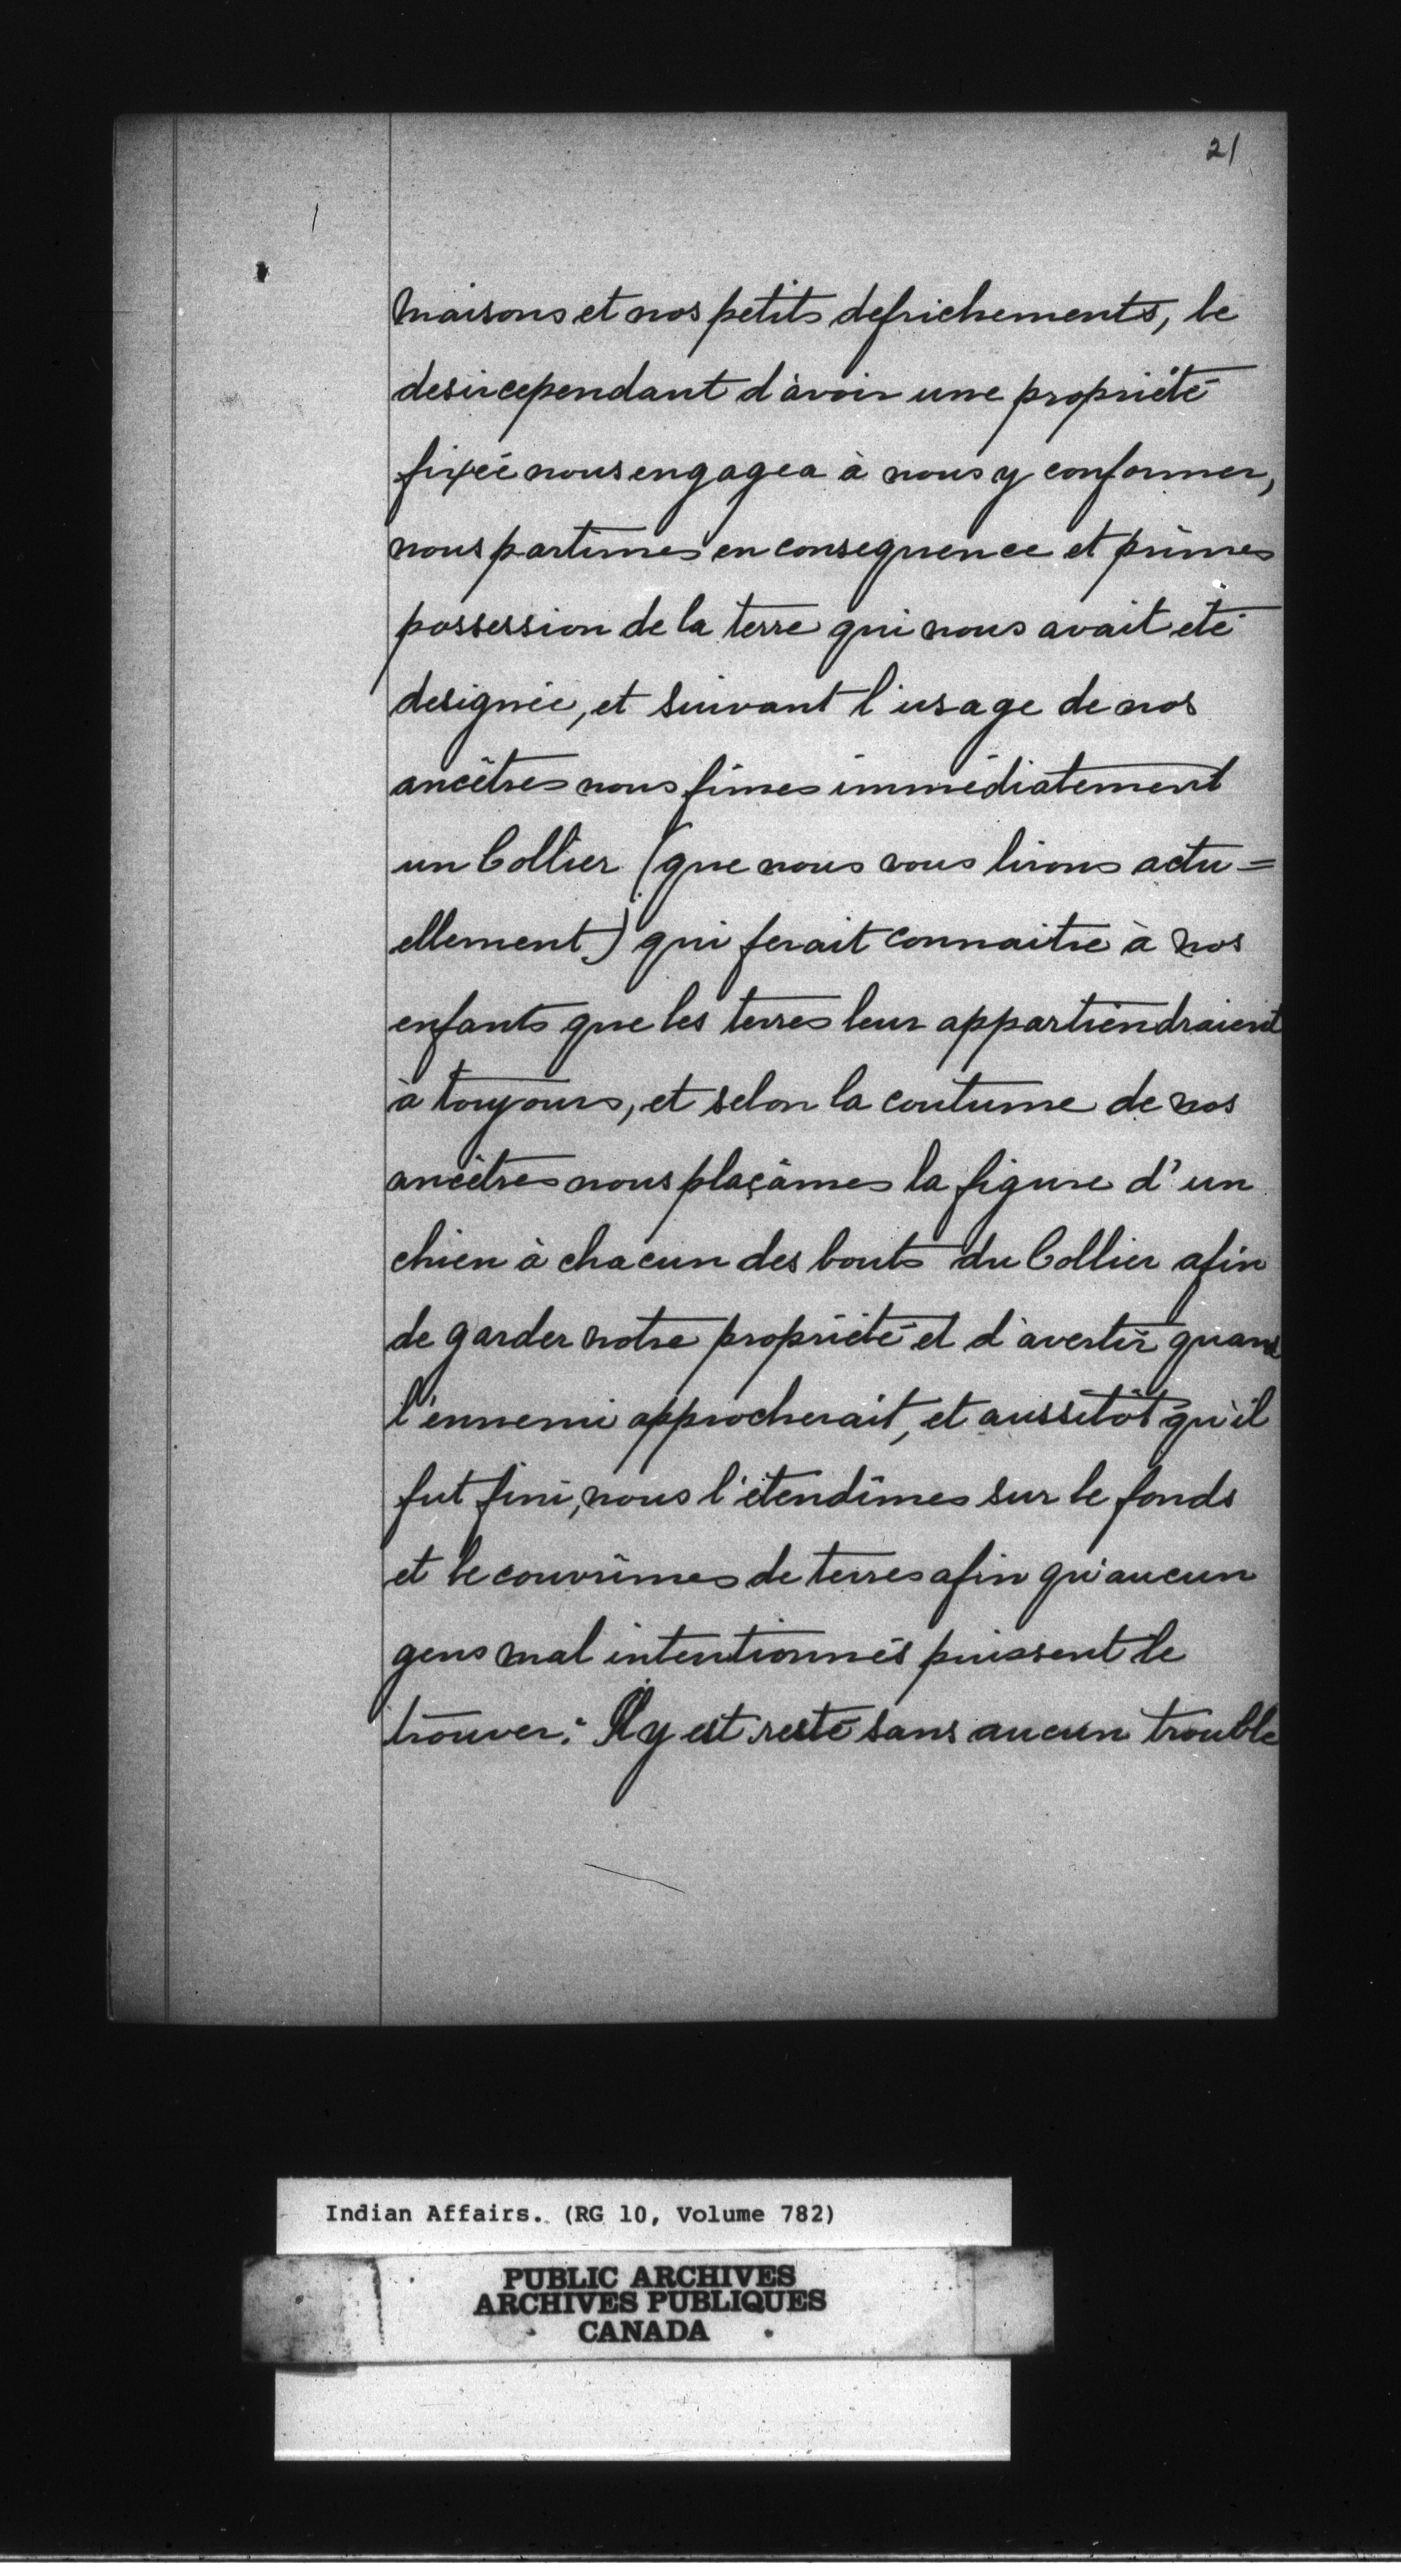 21
maisons et nos petits defrichements, le
desir cependant d'avoir une propriété
fixée nous engagea à nous y conformer,
nous partimes en consequence et primes
possession de la terre qui nous avait eté
designée, et suivant l'usage de nos
ancêtres nous fimes immédiatement
un Collier (que nous vous lirons actu=
ellement) qui ferait connaitre à nos
enfants que les terres leur appartiendraient
à toujours, et selon la coutume de nos
ancêtres nous plaçâmes la figure d'un
chien à chacun des bouts du Collier afin
de garder notre propriété et d'avertir quand
l'ennemi approcherait, et aussitôt qu'il
fut fini, nous l'étendîmes sur le fonds
et le couvrîmes de terres afin qu'aucun
gens mal intentionnés puissent le
trouver: Il y est resté sans aucun trouble
Indian Affairs. (RG 10, Volume 782)
PUBLIC ARCHIVES
ARCHIVES PUBLIQUES
CANADA